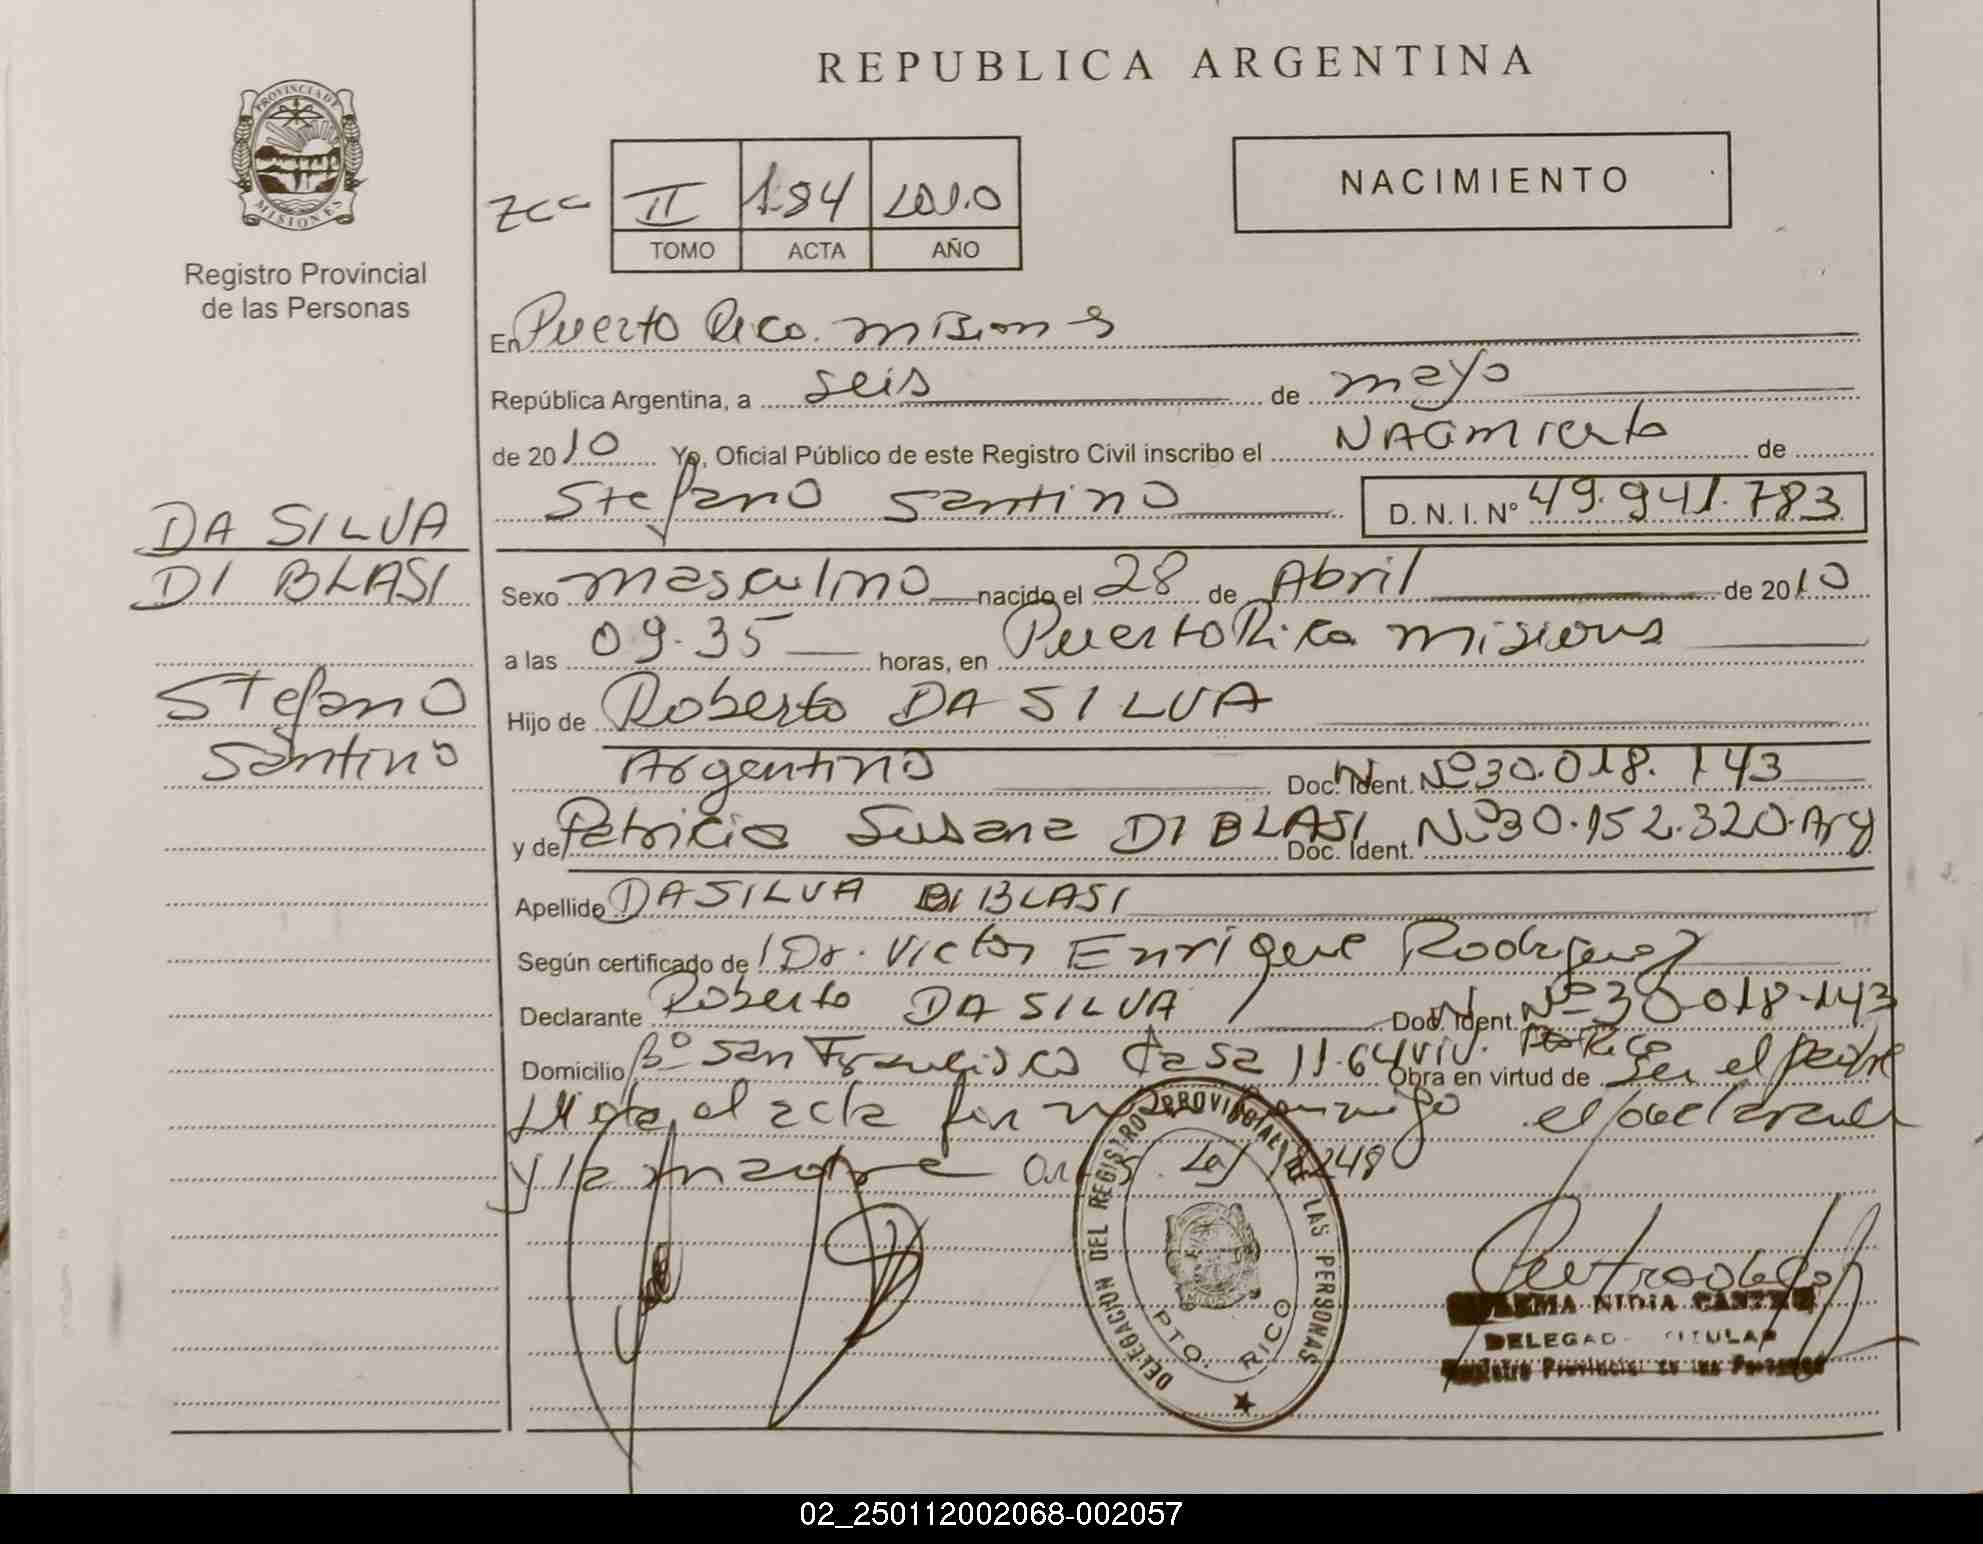 REPUBLICA ARGENTINA
PROVINCIA DE
MISIONES
Registro Provincial
de las Personas
NACIMIENTO
II 184 2010
TOMO ACTA AÑO
En Puerto Rico. misiones
República Argentina, a seis de mayo
de 2010 Yo, Oficial Público de este Registro Civil inscribo el NACimiento de
Stefano Santino D. N. I. N° 49.941.783
DA SILVA
DI BLASI
Stefano
Santino
Sexo masculino nacido el 28 de Abril de 2010
a las 09.35 horas, en Puerto Rico misiones
Hijo de Roberto DA SILVA
Argentino Doc. Ident. Nº 30.018.143
y de Patricia Susana DI BLASI Doc. Ident. Nº 30.152.320. Arg
Apellido DA SILVA DI BLASI
Según certificado de Dr. Victor Enrique Rodriguez
Declarante Roberto DA SILVA Doc. Ident. Nº 30.018.143
Domicilio Bº San Francisco Casa 11. 64 viv. Pto Rico Obra en virtud de Ser el padre
el acta el declarante
y la madre
DELEGACION DEL REGISTRO PROVINCIAL DE LAS PERSONAS
PTO. RICO
NIDIA
DELEGADA TITULAR
Registro Provincial de las Personas
02_250112002068-002057